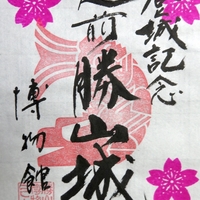 登城記念
越前
勝山城
博物館